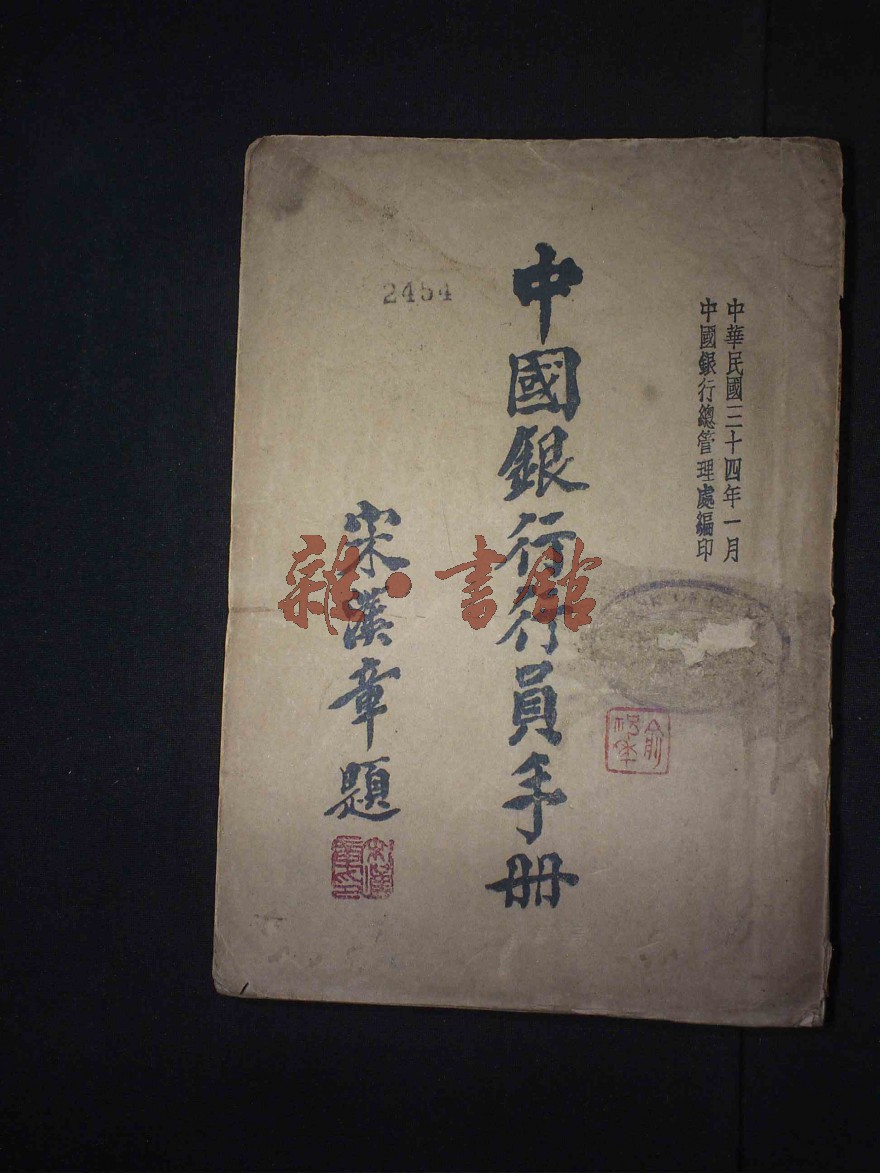 中華民國三十四年一月
中國銀行總管理處編印
中國銀行行員手册
宋漢章題
2454
雜·書館
俞